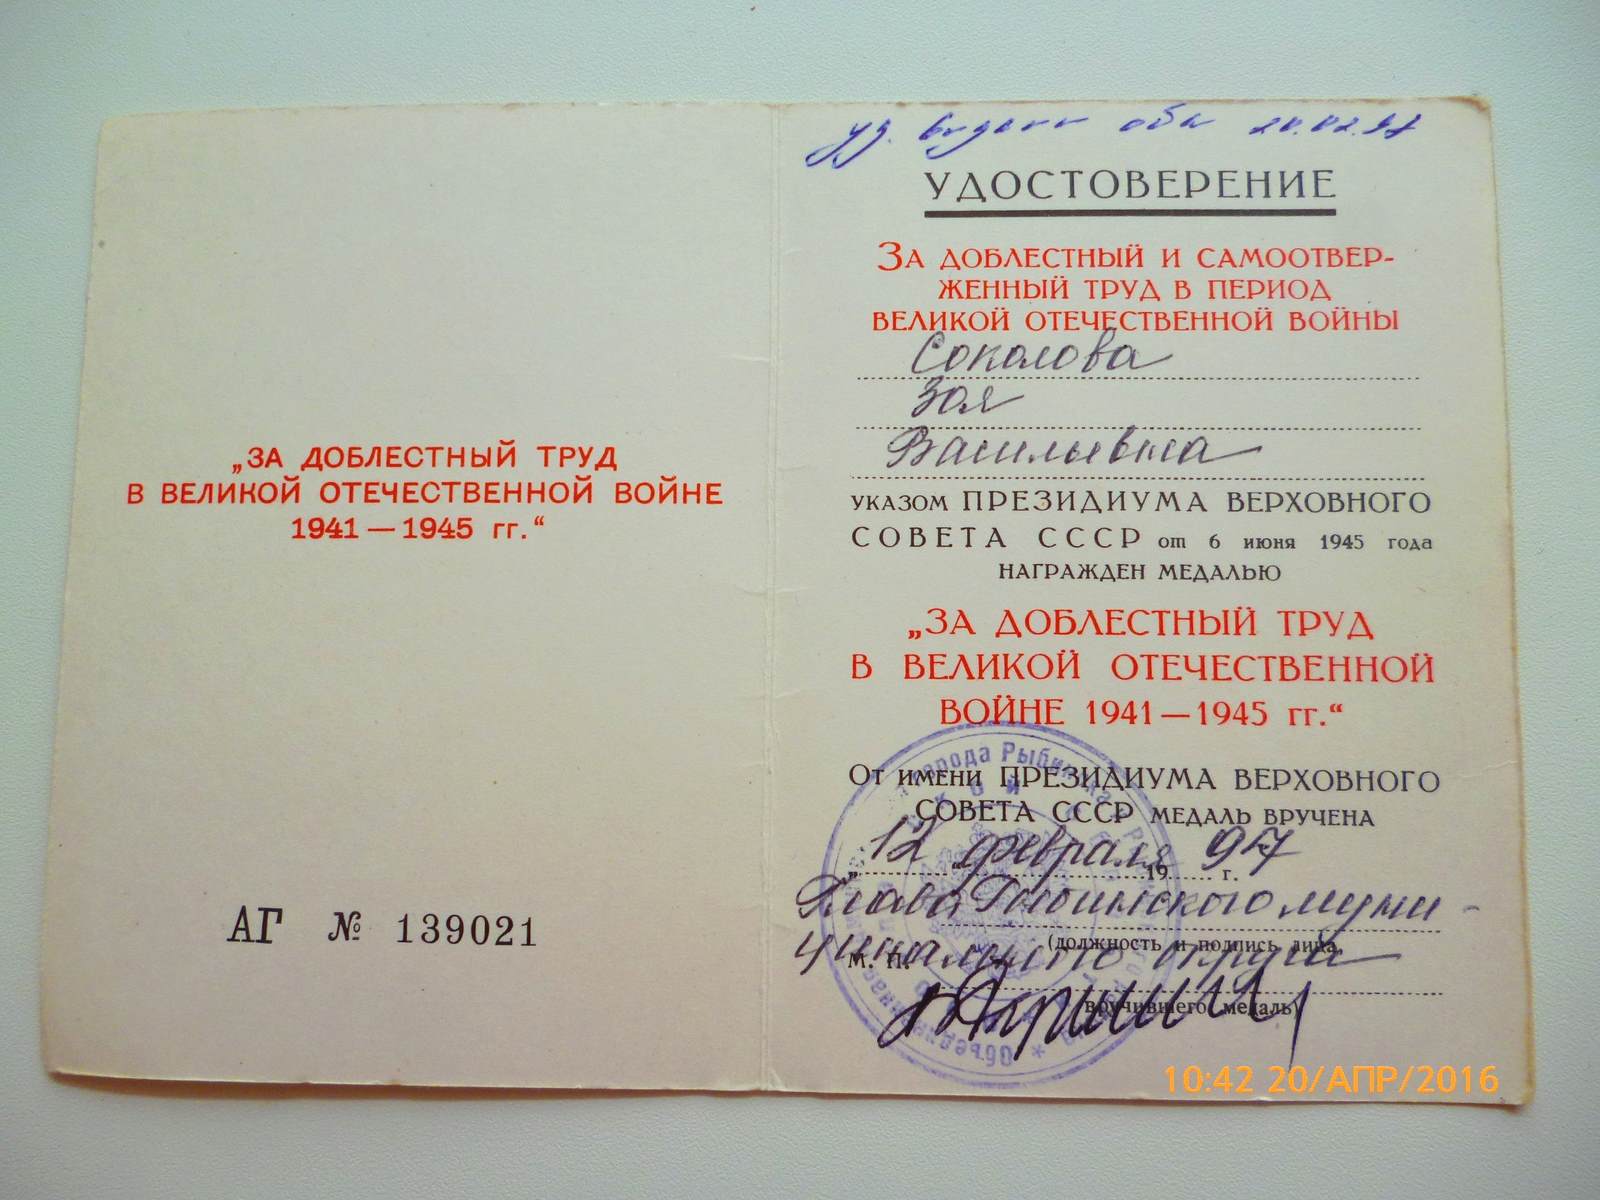 „ЗА ДОБЛЕСТНЫЙ ТРУД
В ВЕЛИКОЙ ОТЕЧЕСТВЕННОЙ ВОЙНЕ
1941 — 1945 гг.“
АГ № 139021
уд.
УДОСТОВЕРЕНИЕ
ЗА ДОБЛЕСТНЫЙ И САМООТВЕР-
ЖЕННЫЙ ТРУД В ПЕРИОД
ВЕЛИКОЙ ОТЕЧЕСТВЕННОЙ ВОЙНЫ
Соколова
Зоя
Васильевна
УКАЗОМ ПРЕЗИДИУМА ВЕРХОВНОГО
СОВЕТА СССР от 6 июня 1945 года
НАГРАЖДЕН МЕДАЛЬЮ
„ЗА ДОБЛЕСТНЫЙ ТРУД
В ВЕЛИКОЙ ОТЕЧЕСТВЕННОЙ
ВОЙНЕ 1941 — 1945 гг.“
От имени ПРЕЗИДИУМА ВЕРХОВНОГО
СОВЕТА СССР МЕДАЛЬ ВРУЧЕНА
„12 февраля 1997 г.
Глава Рыбинского муни-
(должность и подпись лица,
М. П. ципального округа
вручившего медаль)
города Рыбинска
10:42 20/АПР/2016